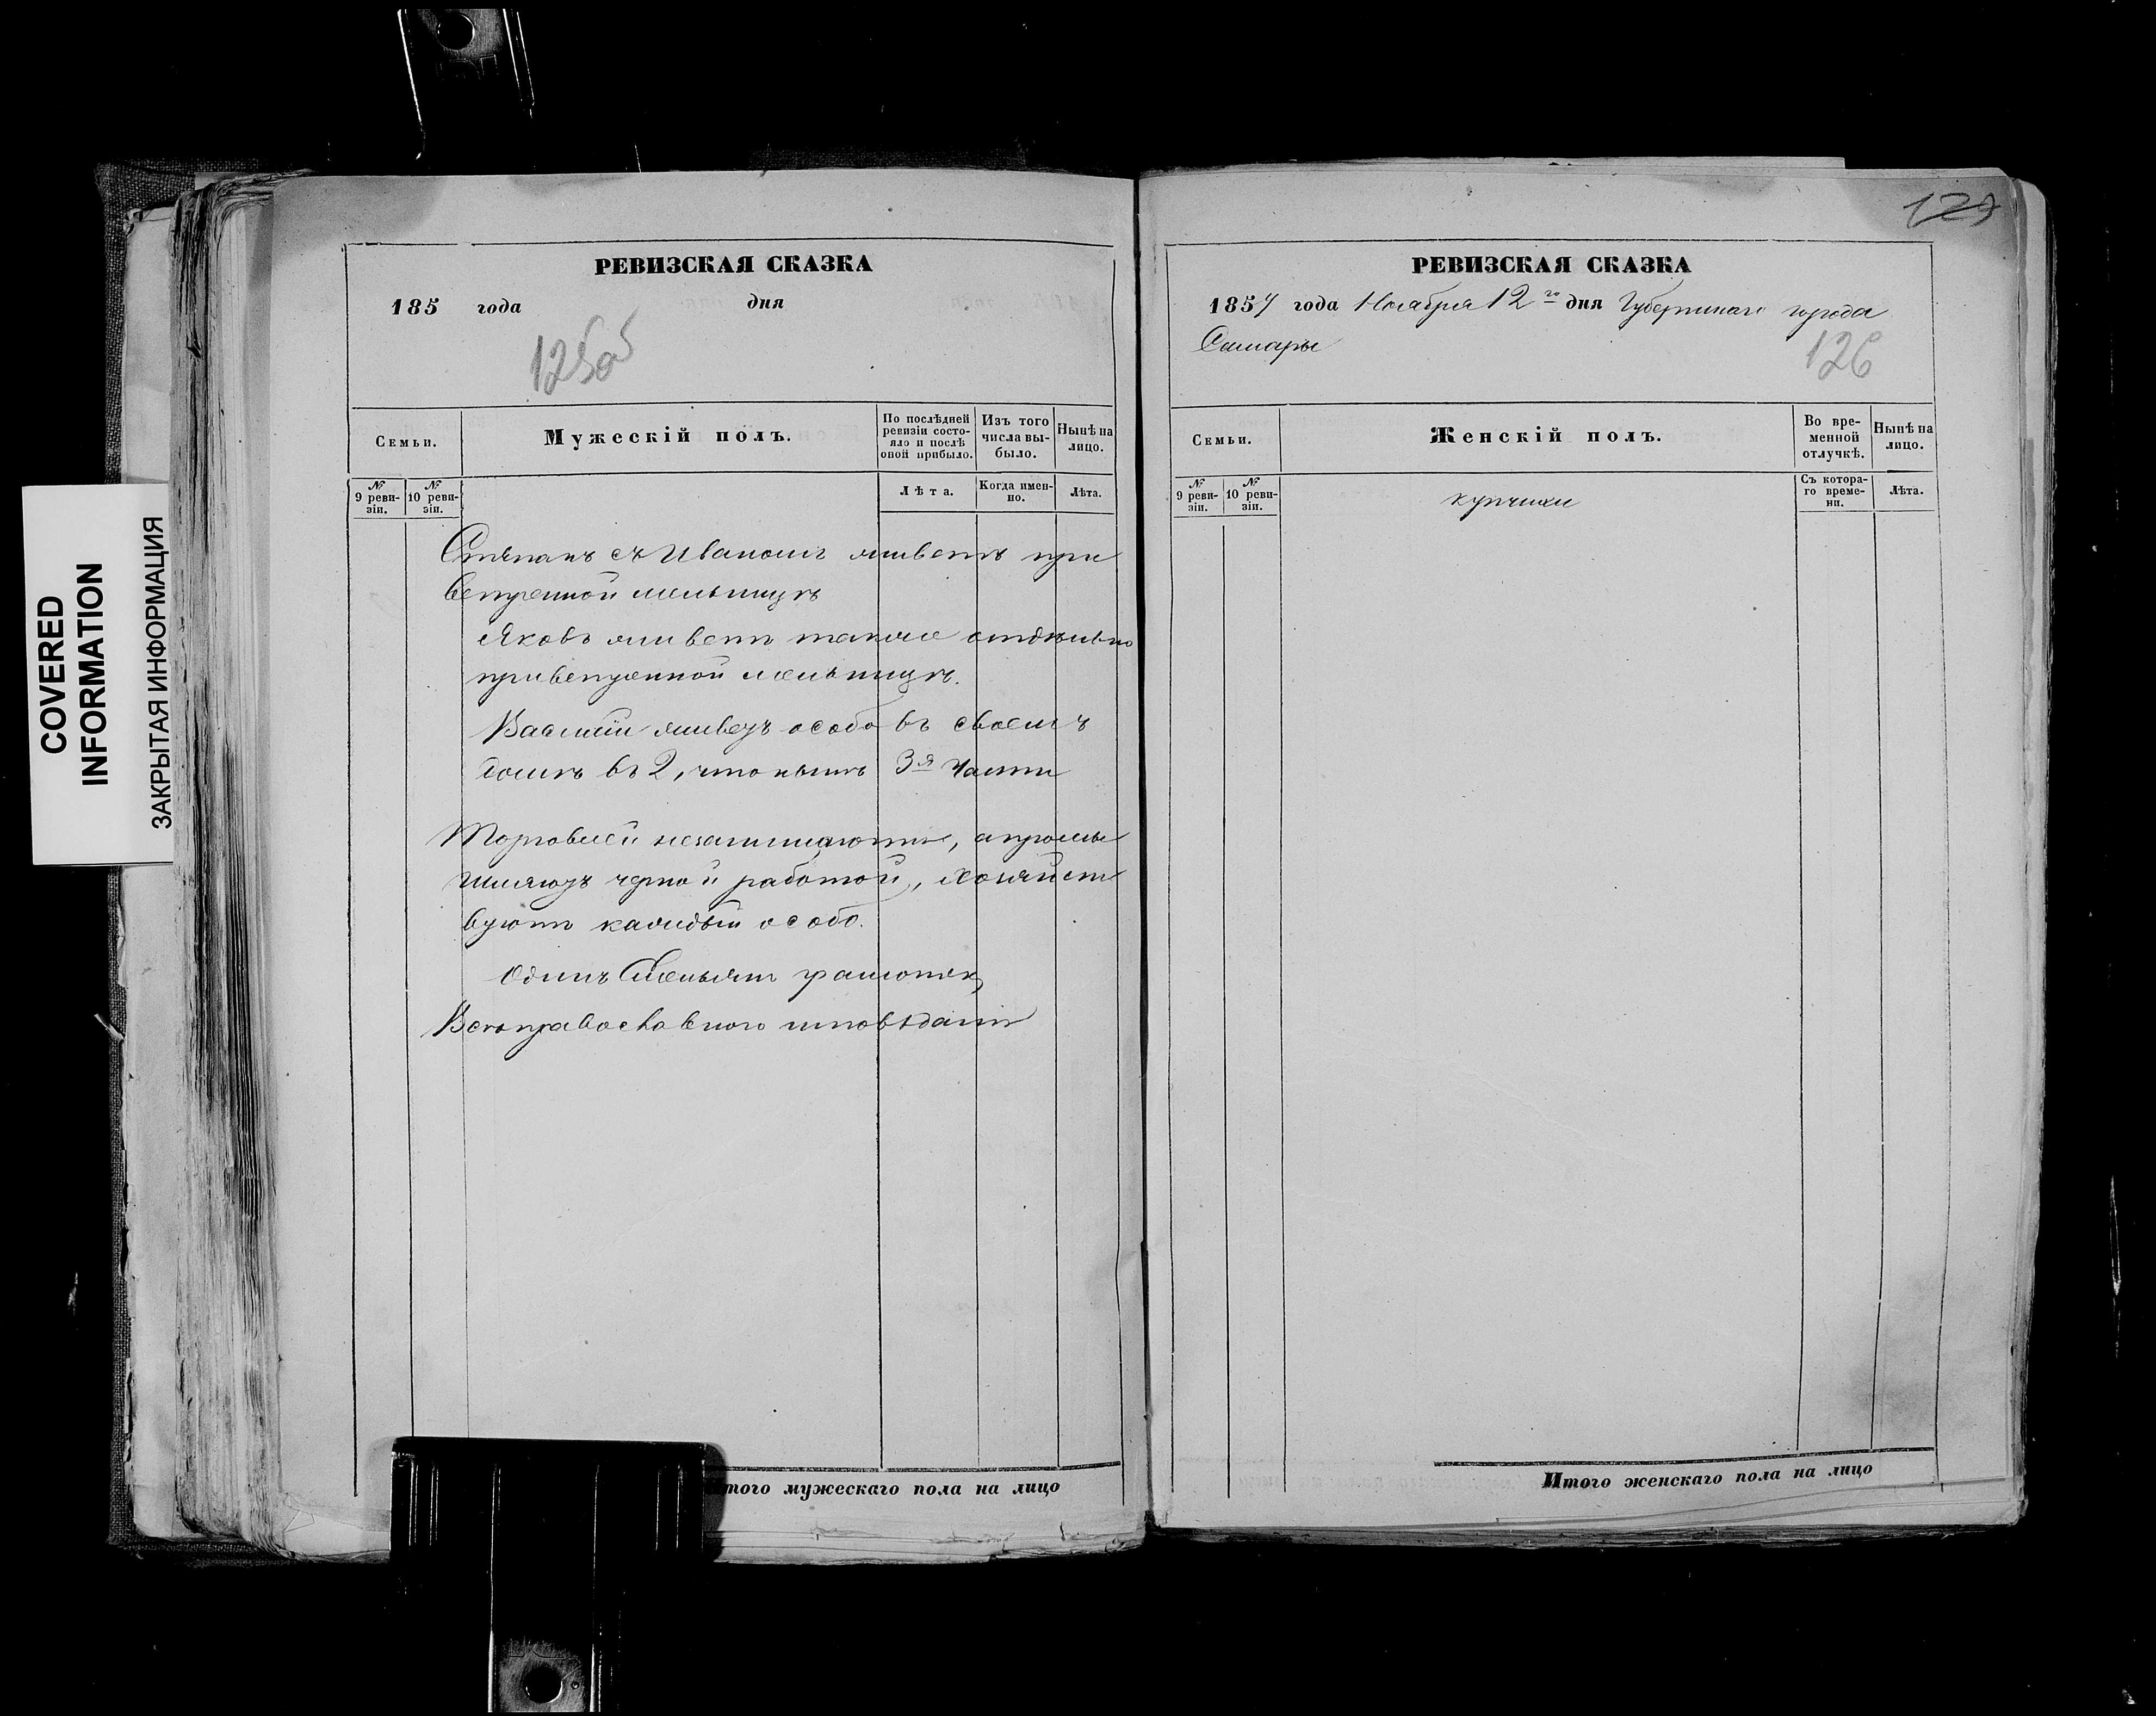 COVERED
INFORMATION
ЗАКРЫТАЯ ИНФОРМАЦИЯ
РЕВИЗСКАЯ СКАЗКА
185 года дня
125об
Семьи.
Мужескій полъ.
По послѣдней ревизіи состояло и послѣ оной прибыло.
Изъ того числа выбыло.
Нынѣ на лицо.
№ 9 ревизіи.
№ 10 ревизіи.
Лѣта.
Когда именно.
Лѣта.
Степанъ съ Иваномъ живетъ при
ветренной мельницѣ
Яковъ живетъ также отдѣльно
приветренной мельницѣ.
Василій живетъ особо въ своемъ
домѣ въ 2, что нынѣ 3я части
Торговлей незанимаются, апромы
шляютъ черной работой, хозяйст
вуютъ каждый особо.
Одинъ грамотѣнъ
Всѣ православного исповѣданія
127
РЕВИЗСКАЯ СКАЗКА
1857 года Ноября 12го дня Губернскаго города
Самары
126
Семьи.
Женскій полъ.
Во временной отлучкѣ.
Нынѣ на лицо.
№ 9 ревизіи.
№ 10 ревизіи.
купчихи
Съ котораго времени.
Лѣта.
того мужескаго пола на лицо
Итого женскаго пола на лицо